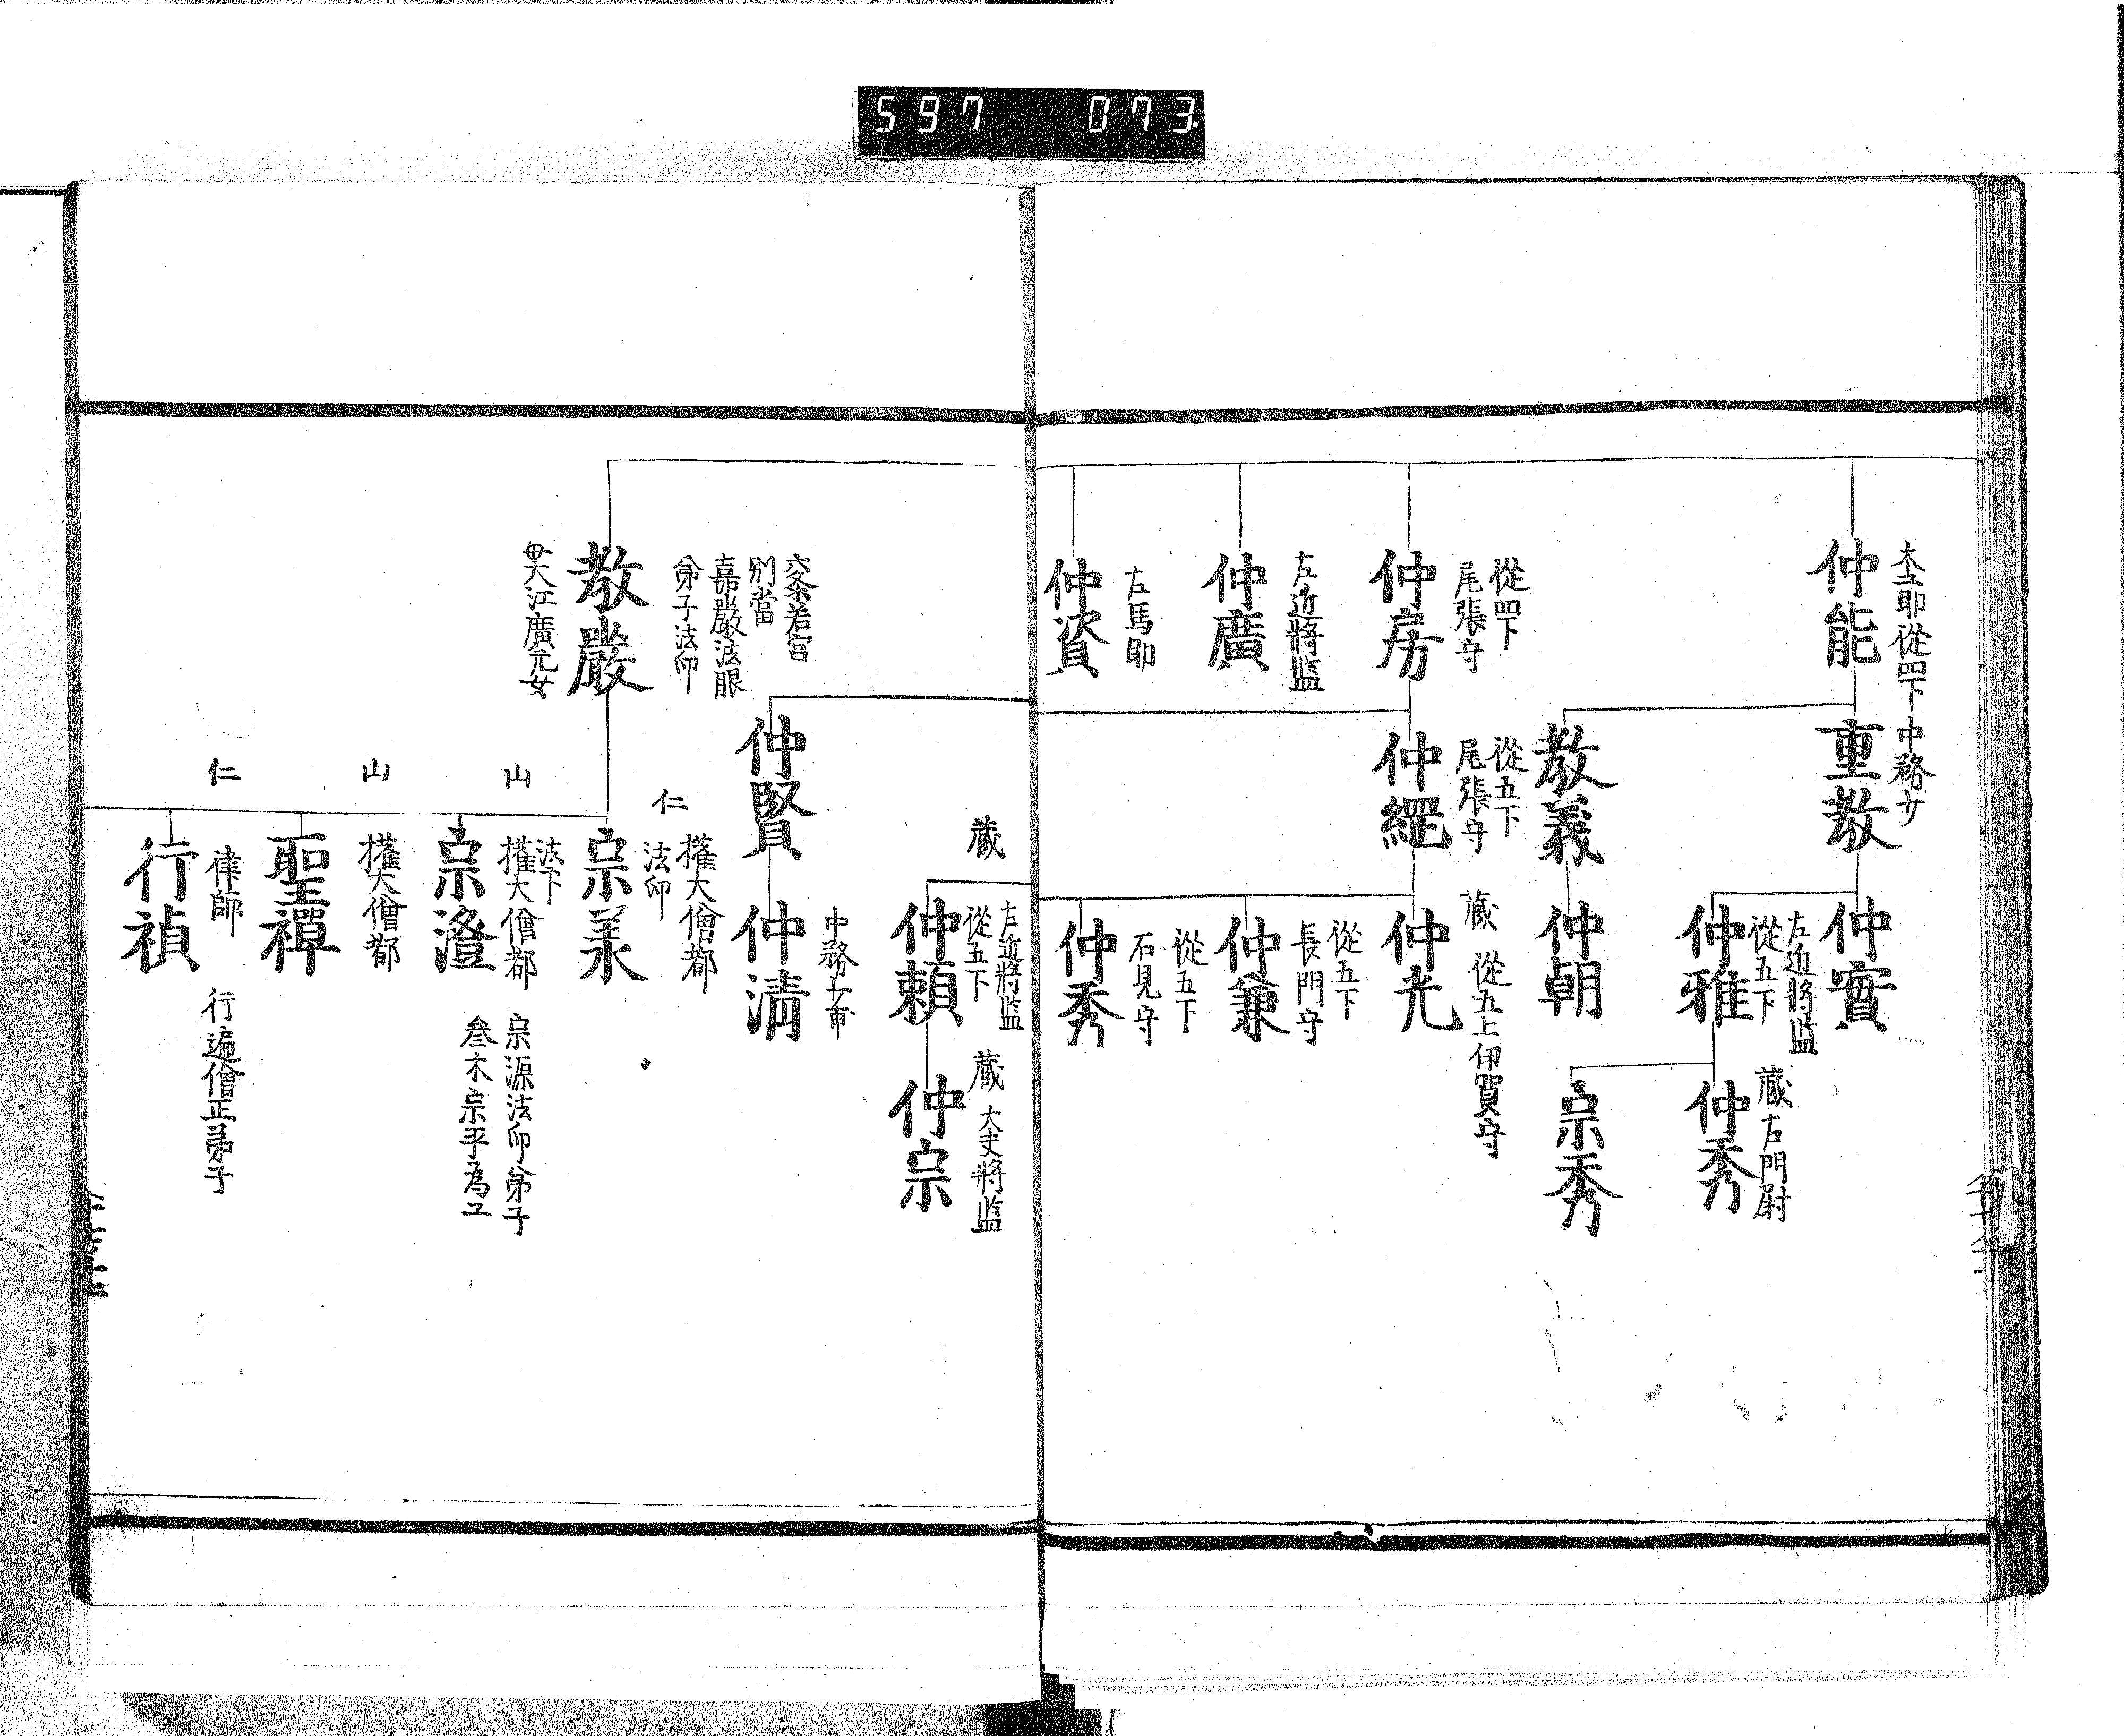 597 073
仲能
木工助從四下中務少
重教
仲實
仲雅
左近將監
從五下
仲秀
蔵右門尉
宗秀
教義
仲朝
仲房
從四下
尾張守
仲繩
從五下
尾張守
仲光
蔵 從五上伊賀守
仲兼
從五下
長門守
仲秀
從五下
石見守
仲廣
左近將監
仲資
左馬助
蔵
仲頼
左近將監
從五下
仲宗
蔵 大夫將監
仲賢
仲清
中務
教嚴
六条若宮
別當
嘉嚴法眼
弟子法印
母大江廣元女
仁
宗美
權大僧都
法印
山
宗澄
法下
權大僧都
宗源法印弟子
叅木宗平為子
山
聖禪
權大僧都
仁
行禎
律師
行遍僧正弟子